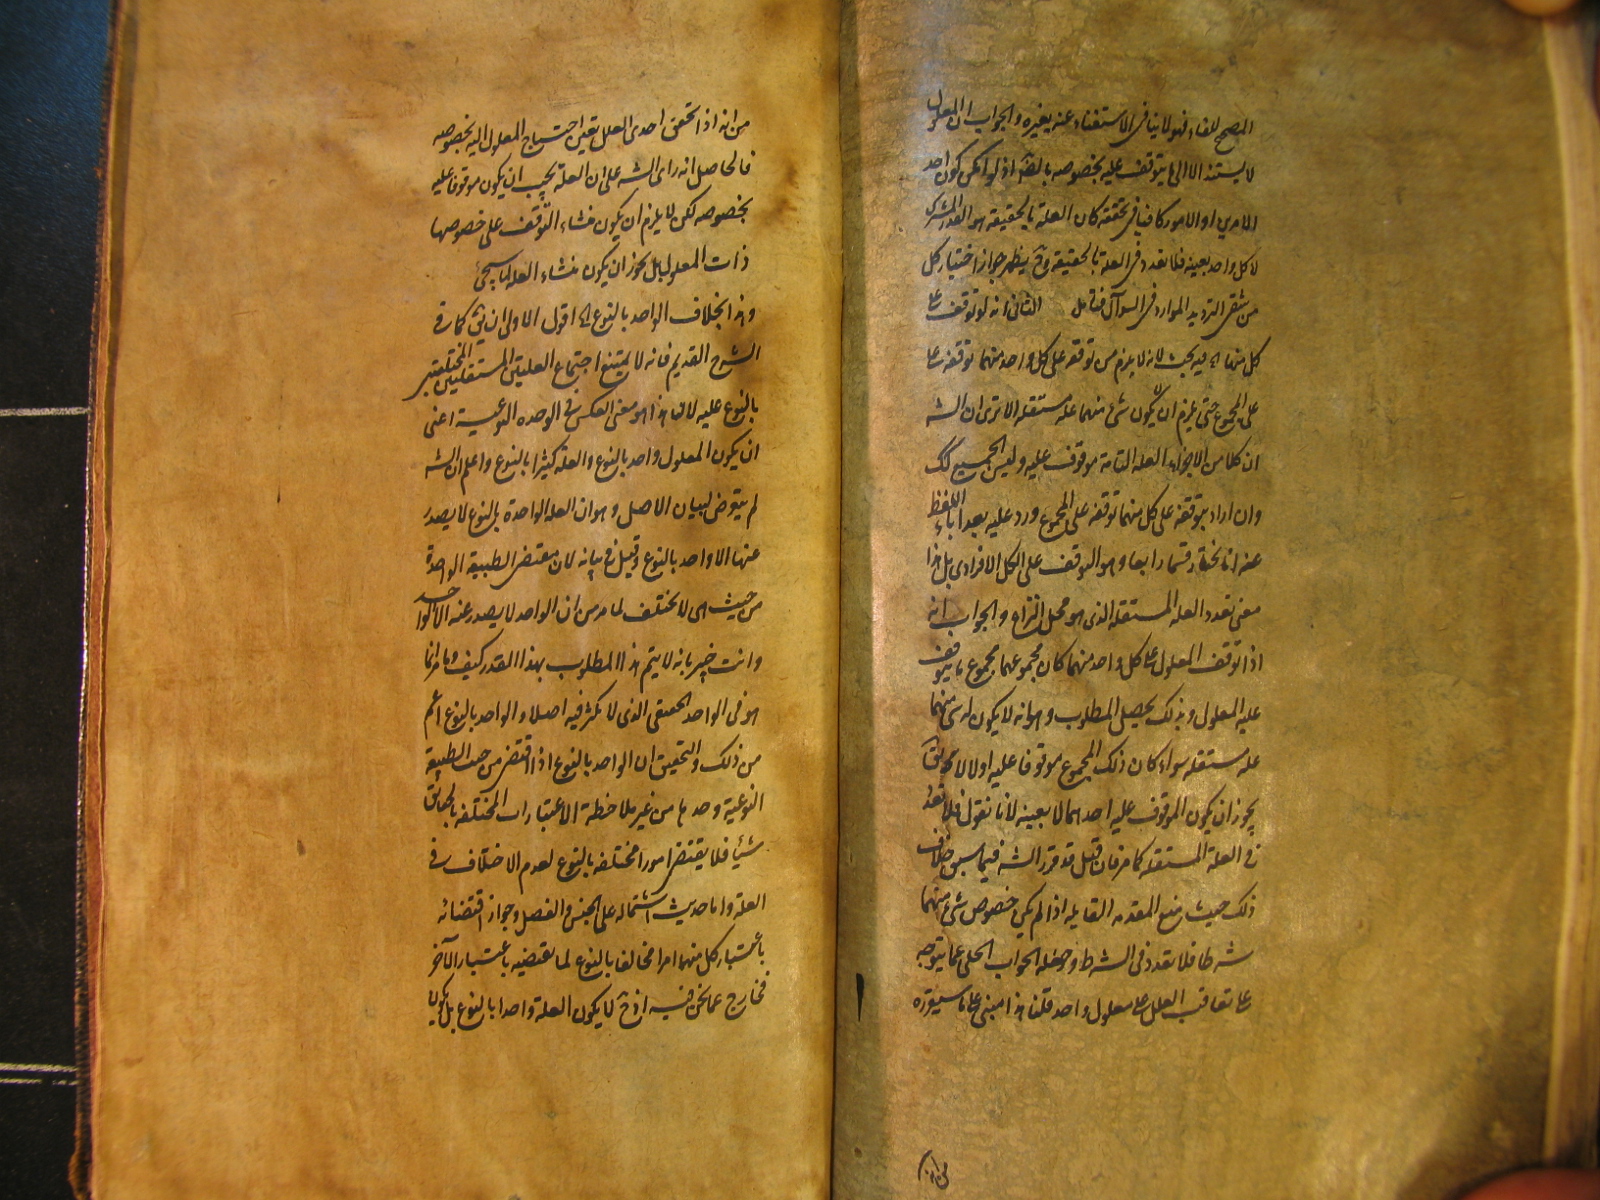 المصحح للفاء فهو لا ينافى الاستغناء عنه بغيره والجواب ان المعلول
لا يستند الا الى ما يتوقف عليه بخصوصه بالضرورة اذ لو امكن كون احد
الامرين او الامور كافيا فى تحققه كان العلة بالحقيقة هو القدر المشترك
لا كل واحد بعينه فلا تعدد فى العلة بالحقيقة وح يظهر جواز اختيار كل
من شقى الترديد الموارد فى السوآل فتامل الثانى انه لو توقف على
كل منهما اه فيه بحث لانه لا يلزم من توقفه على كل واحد منهما توقفه على
على المجموع حتى يلزم ان لا يكون شئ منهما علة مستقله الا ترى ان الشه
ان كلا من الاجزاء العلة التامة موقوف عليه وليس الجميع كك
وان اراد بتوقفه على كل منهما توقفه على المجموع ورد عليه بعد اباء اللفظ
عنه انا نختار قسما رابعا وهو التوقف على الكل الافرادى بل هذا
معنى تعدد العلة المستقلة الذى هو محل النزاع والجواب انه
اذا توقف المعلول على كل واحد منهما كان مجموعهما مجموع ما يتوقف
عليه المعلول وبذلك يحصل المطلوب وهو انه لا يكون له شئ منهما
علة مستقله سواء كان ذلك المجموع موقوفا عليه اولا لا يقال
يجوز ان يكون الموقوف عليه احدهما لا بعينه لانا نقول فلا تعدد
فى العلة المستقلة كما مر فان قيل قد قرر الشه فيما سبق خلاف
ذلك حيث منع المقدمه القايله اذا لم يكن خصوص شئ منهما
شرطا فلا تعدد فى الشرط وجعله الجواب الحلى عما يتوجه
على تعاقب العلل على معلول واحد قلنا هذا مبنى على ما سيقرره
من انه اذا تحقق احدى العلل تعين احتياج المعلول اليه بخصوصه
فالحاصل انه راى الشه على ان العلة يجب ان يكون موقوفا عليه
بخصوصه لكن لا يلزم ان يكون منشاء التوقف على خصوصها
ذات المعلول بل يجوز ان يكون منشاء العلة لما سيجئ
وهذا بخلاف الواحد بالنوع اه اقول الاولى ان يق كما فى
الشرح القديم فانه لا يمتنع اجتماع العلتين المستقلتين المختلفتين
بالنوع عليه لان هذا هو معنى العكس فى الوحدة النوعية اعنى
ان يكون المعلول واحد بالنوع والعلة كثيرا بالنوع واعلم ان الشه
لم يتعرض لبيان الاصل وهو ان العلة الواحدة بالنوع لا يصدر
عنها الا واحد بالنوع وقيل فى بيانه لان مقتضى الطبيعة الواحدة
من حيث هى لا يختلف لما مر من ان الواحد لا يصدر عنه الا الواحد
وانت خبير بانه لا يتم هذا المطلوب بهذا القدر كيف وما مر انما
هو فى الواحد الحقيقى الذى لا تكثر فيه اصلا والواحد بالنوع اعم
من ذلك والتحقيق ان الواحد بالنوع اذا اقتضى من حيث الطبيعة
النوعية وحدها من غير ملاحظة الاعتبارات المختلفه بالحقائق
شيئا فلا يقتضى امورا مختلفه بالنوع لعدم الاختلاف فى
العلة واما حديث اشتماله على الجنس والفصل وجواز اقتضائه
باعتبار كل منهما امرا مخالفا بالنوع لما تقتضيه باعتبار الآخر
فخارج عما نحن فيه اذ ح لا يكون العلة واحدا بالنوع بل يكون